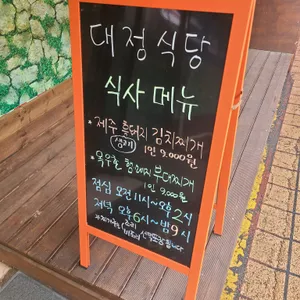 대정식당
식사 메뉴
* 제주 흑돼지 김치찌개
생고기 1인 9.000원
부대찌개
1인 9.000원
점심 오전11시~오후2시
저녁 오후6시~밤9시